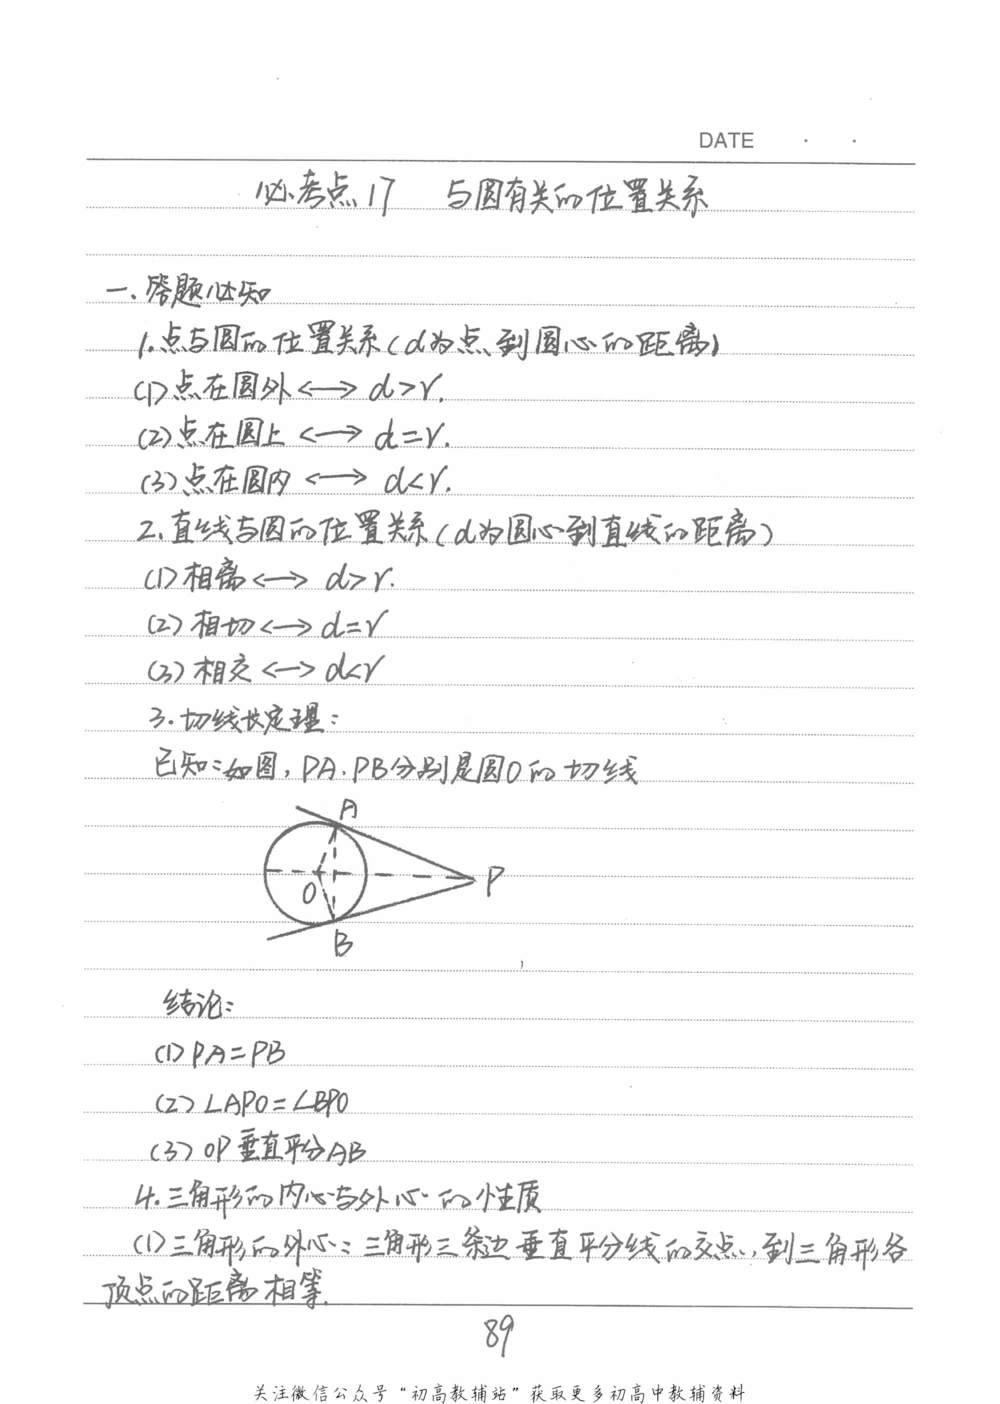 DATE · ·
必考点17 与圆有关的位置关系
一.答题必知
1.点与圆的位置关系(d为点到圆心的距离)
(1)点在圆外<—>d>r.
(2)点在圆上<—>d=r.
(3)点在圆内<—>d<r.
2.直线与圆的位置关系(d为圆心到直线的距离)
(1)相离<—>d>r.
(2)相切<—>d=r
(3)相交<—>d<r
3.切线长定理:
已知:如图,PA.PB分别是圆O的切线
A
O
P
B
结论:
(1)PA=PB
(2)∠APO=∠BPO
(3)OP垂直平分AB
4.三角形的内心与外心的性质
(1)三角形的外心:三角形三条边垂直平分线的交点,到三角形各
顶点的距离相等.
89
关注微信公众号“初高教辅站”获取更多初高中教辅资料